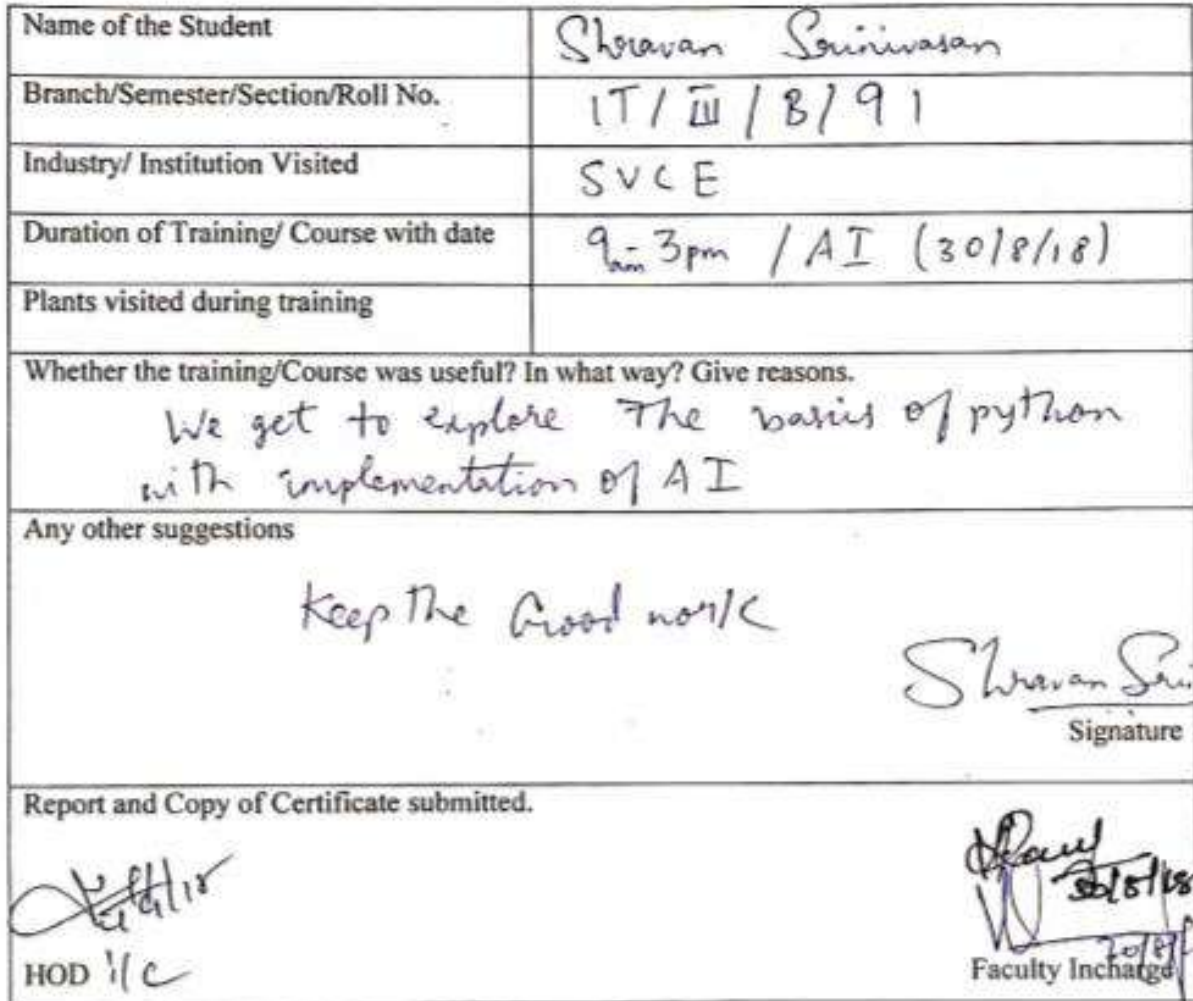 Name of the Student Shravan Srinivasan
Branch/Semester/Section/Roll No. IT / III / B / 91
Industry/ Institution Visited SVCE
Duration of Training/ Course with date 9am-3pm / AI (30/8/18)
Plants visited during training
Whether the training/Course was useful? In what way? Give reasons.
We get to explore The basics of python
with implementation of AI
Any other suggestions
Keep The Good work
Shravan Sri
Signature
Report and Copy of Certificate submitted.
30/8/18
HOD i/c
Faculty Incharge